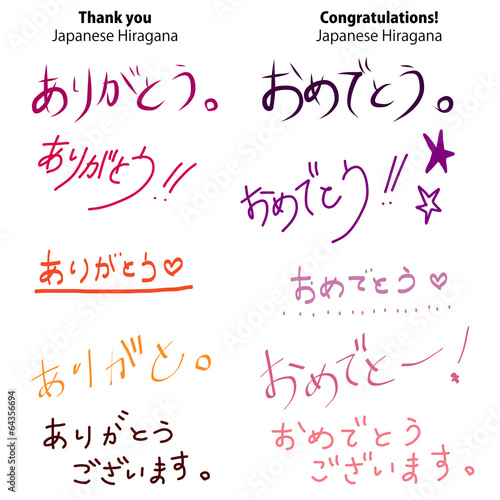 Thank you
Japanese Hiragana
ありがとう。
ありがとう!!
ありがとう♡
ありがと。
ありがとう
ございます。
Congratulations!
Japanese Hiragana
おめでとう。
おめでとう!!
おめでとう♡
おめでとー!
おめでとう
ございます。
Adobe Stock | #64356694